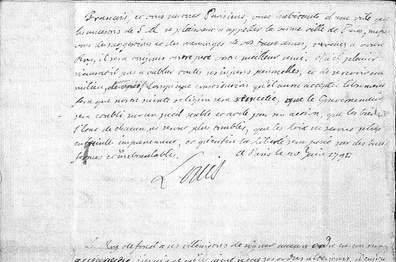 François, et vous surtout Parisiens, vous habitants d'une ville que
les ancestres de S.M. se plaisoient a appeller la bonne ville de Paris, méfiez
vous des suggestions et des mensonges de vos faux amis, revenez a votre
Roi, il sera toujours votre père, votre meilleur ami. Quel plaisir
n'aura-t-il pas a oublier toutes ses injures personnelles, et de se revoir au
milieu de vous lorsqu'une constitution qu'il aura acceptée librement
fera que notre sainte religion sera respectée, que le Gouvernement
sera établi sur un pied stable et utile par son action, que les biens et
l'état de chacun ne seront plus troublés, que les loix ne seront plus
enfreintes impunement, et qu'enfin la liberté sera posée sur des bases
fermes et inébranlables. A Paris le 20 Juin 1791
Louis
Le Roi deffend a ses ministres de signer aucun ordre en son nom